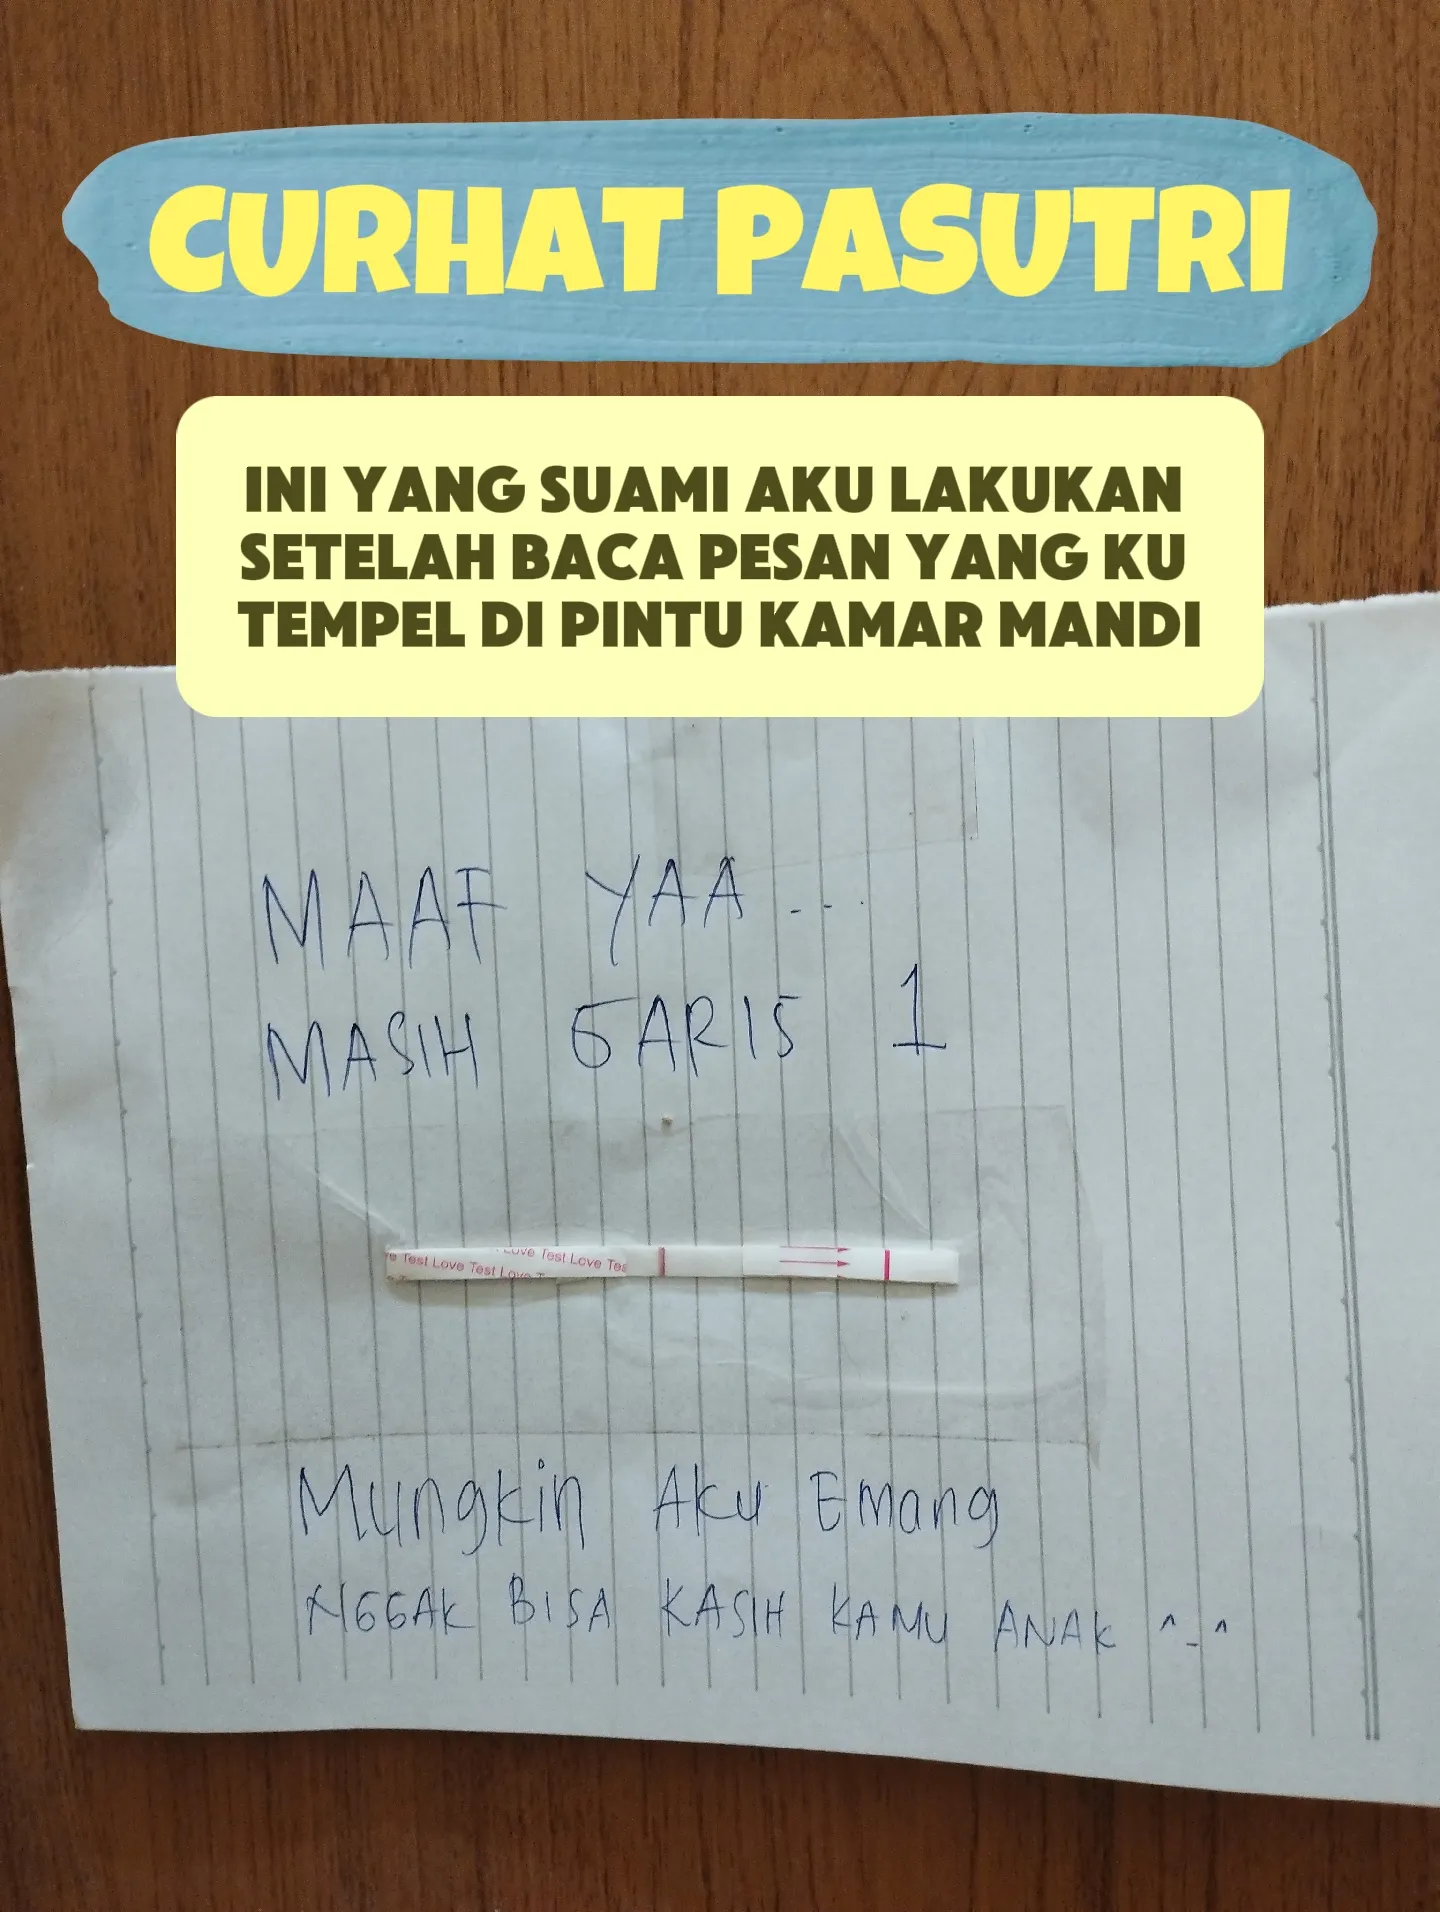 CURHAT PASUTRI
INI YANG SUAMI AKU LAKUKAN
SETELAH BACA PESAN YANG KU
TEMPEL DI PINTU KAMAR MANDI
MAAF YAA ...
MASIH GARIS 1
Love Test Love Tes
Test Love Test Love T
Mungkin Aku Emang
NGGAK BISA KASIH KAMU ANAK ^_^